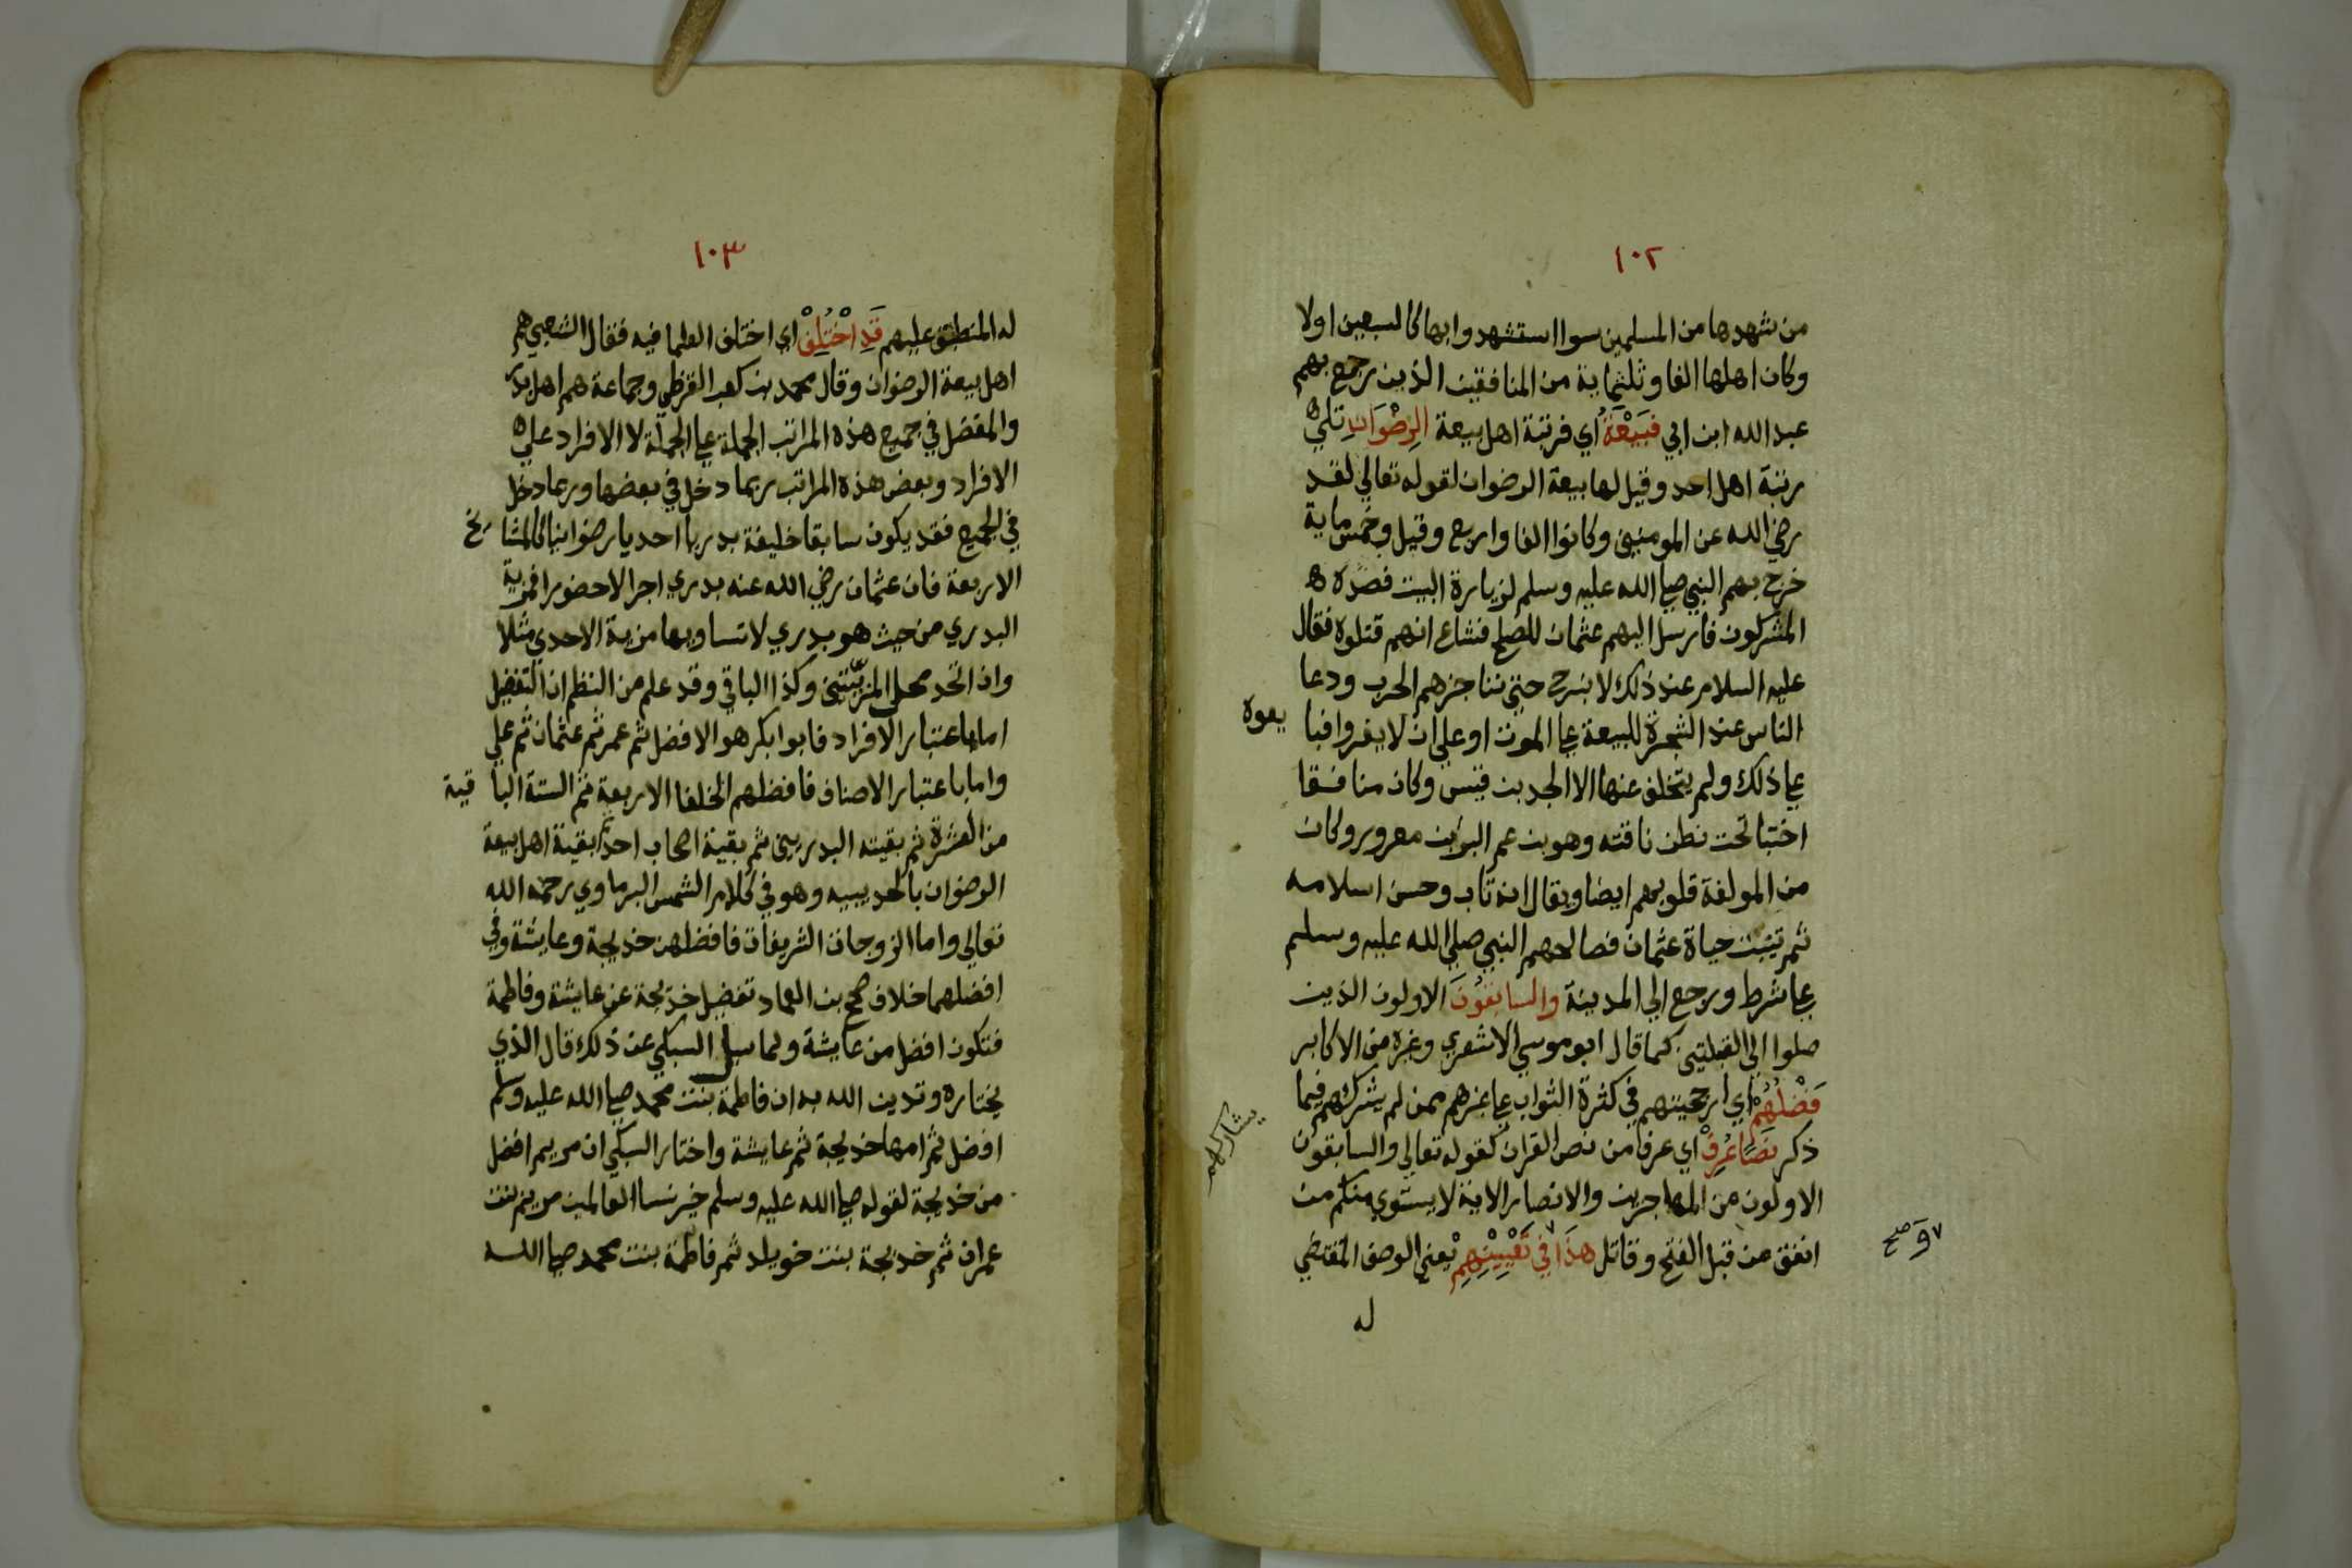 ١٠٢
من شهدها من المسلمين سوا استشهدوا بها كالسبعين اولا
وكان اهلها الفا وثلثماية من المنافقين الذين رجع بهم
عبد الله ابن ابي فَبَيْعَةُ اي فرتبة اهل بيعة الرِضْوَانِ تلي
رتبة اهل احد وقيل لها بيعة الرضوان لقوله تعالي لقد
رضي الله عن المومنين وكانوا الفا واربع وقيل وخمس ماية
خرج بهم النبي صلي الله عليه وسلم لزيارة البيت فصده
المشركون فارسل اليهم عثمان للصلح فشاع انهم قتلوه فقال
عليه السلام عند ذلك لا نبرح حتي نناجزهم الحرب ودعا
الناس عند الشجرة للبيعة علي الموت او علي ان لا يفروا فبا يعوه
علي ذلك ولم يتخلف عنها الا الجد بن قيس وكان منافقا
اختبا تحت بطن ناقته وهو بن عم البرا بن معرور وكان
من المولفة قلوبهم ايضا ويقال انه تاب وحسن اسلامه
ثم تبينت حياة عثمان فصالحهم النبي صلي الله عليه وسلم
علي شرط ورجع الي المدينة والسابقونَ الاولون الذين
صلوا الي القبلتين كما قال ابو موسي الاشعري وغيره من الاكابر
فَضْلُهُمْ اي ارجحيتهم في كثرة الثواب علي غيرهم ممن لم يشركهم فيما
يشاركهم
ذكر نَصًّا عُرِفْ اي عرفا من نص القران كقوله تعالي والسابقون
الاولون من المهاجرين والانصار الاية لا يستوي منكم من
انفق من قبل الفتح وقاتل هذَا في تَعْيِيْنِهِمْ يعني الوصف المقتضي
و صح
له
١٠٣
له المنطبق عليهم قَدِ اخْتُلِفْ اي اختلف العلما فيه فقال الشعبي هم
اهل بيعة الرضوان وقال محمد بن كعب القرظي وجماعة هم اهل بدر
والمفضل في جميع هذه المراتب الجملة علي الجملة لا الافراد علي
الافراد وبعض هذه المراتب ربما دخل في بعضها وربما دخل
في الجميع فقد يكون سابقا خليفة بدريا احديا رضوانيا كالمشايخ
الاربعة فان عثمان رضي الله عنه بدري اجرا لا حضورا فمزية
البدري من حيث هو بدري لا تساويها مزية الاحدي مثلا
وان اتحد محل المزيتين وكذا الباقي وقد علم من النظم ان التفضيل
اما باعتبار الافراد فابوا بكر هو الافضل ثم عمر ثم عثمان ثم علي
واما باعتبار الاصناف فافضلهم الخلفا الاربعة ثم الستة البا قية
من العشرة ثم بقيته البدريين ثم بقية اصحاب احد ثم بقية اهل بيعة
الرضوان بالحديبيه وهو في كلام الشمس البرماوي رحمه الله
تعالي واما الزوجات الشريفات فافضلهن خديجة وعايشة وفي
افضلهما خلاف صحح بن العماد تفضيل خديجة عن عايشة وفاطمة
فتكون افضل من عايشة ولما سيل السبكي عن ذلك قال الذي
يختاره وتدين الله به ان فاطمة بنت محمد صلي الله عليه وسلم
افضل ثم امها خديجة ثم عايشة واختار السبكي ان مريم افضل
من خديجة لقوله صلي الله عليه وسلم خير نسا العالمين مريم بنت
عمران ثم خديجة بنت خويلد ثم فاطمة بنت محمد صلي الله